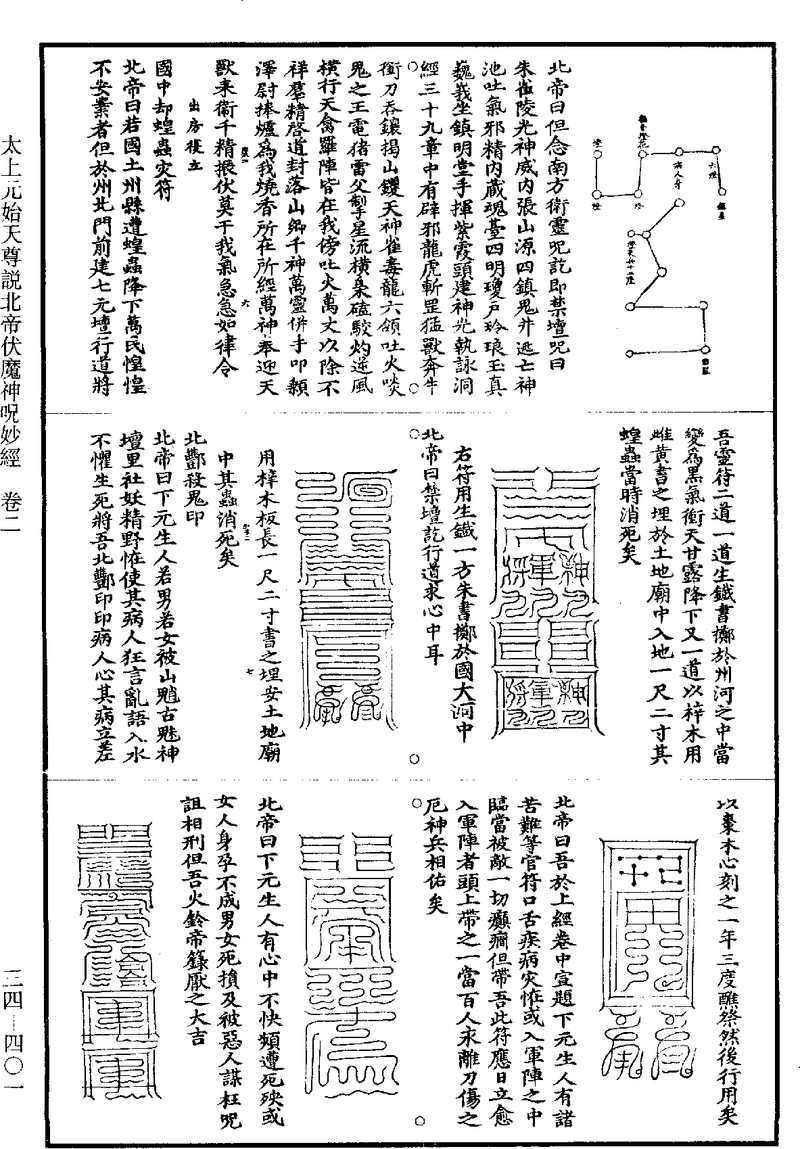 北帝曰但念南方衛靈呪訖即禁壇呪曰
朱雀陵光神威内張山源四鎮鬼井逃亡神
池吐氣邪精内藏瑰臺四明瓊户玲琅玉真
巍峩坐鎮明堂手揮紫霞頭建神光執詠洞
經三十九章中有辟邪龍虎斬罡猛獸奔牛
銜刀吞鑲揭山钁天神雀毒龍六領吐火啖
鬼之王電猪雷父掣星流横梟磕駮灼逆風
横行天禽羅陣皆在我傍吐火萬丈以除不
祥羣精啓道封落山鄉千神萬靈併手叩顙
澤尉捧爐為我燒香所在所經萬神奉迎天
獸來衛千精振伏莫干我氣急急如律令
出房後立
國中却蝗蟲灾符
北帝曰若國土州縣遭蝗蟲降下萬民惶惶
不安業者但於州北門前建七元壇行道將
吾靈符二道一道生鐵書擲於州河之中當
變為黑氣衝天甘露降下又一道以梓木用
雌黄書之埋於土地廟中入地一尺二寸其
蝗蟲當時消死矣
右符用生鐵一方朱書擲於國大河中
北帝曰禁壇訖行道求心中耳
用梓木板長一尺二寸書之埋安土地廟
中其蟲消死矣
北酆殺鬼印
北帝曰下元生人若男若女被山魈古魅神
壇里社妖精野恠使其病人狂言亂語入水
不懼生死將吾北酆印印病人心其病立差
以棗木心刻之一年三度醮祭然後行用矣
北帝曰吾於上經卷中宣題下元生人有諸
苦難等官符口舌疾病灾恠或入軍陣之中
臨當被敵一切癲癎但帶吾此符應日立愈
入軍陣者頭上帶之一當百人永離刀傷之
厄神兵相佑矣
北帝曰下元生人有心中不快頻遭死殃或
女人身孕不成男女死損及被惡人謀枉呪
詛相刑但吾火鈴帝籙厭之大吉
太上元始天尊説北帝伏魔神呪妙經 卷二
三四—四〇一